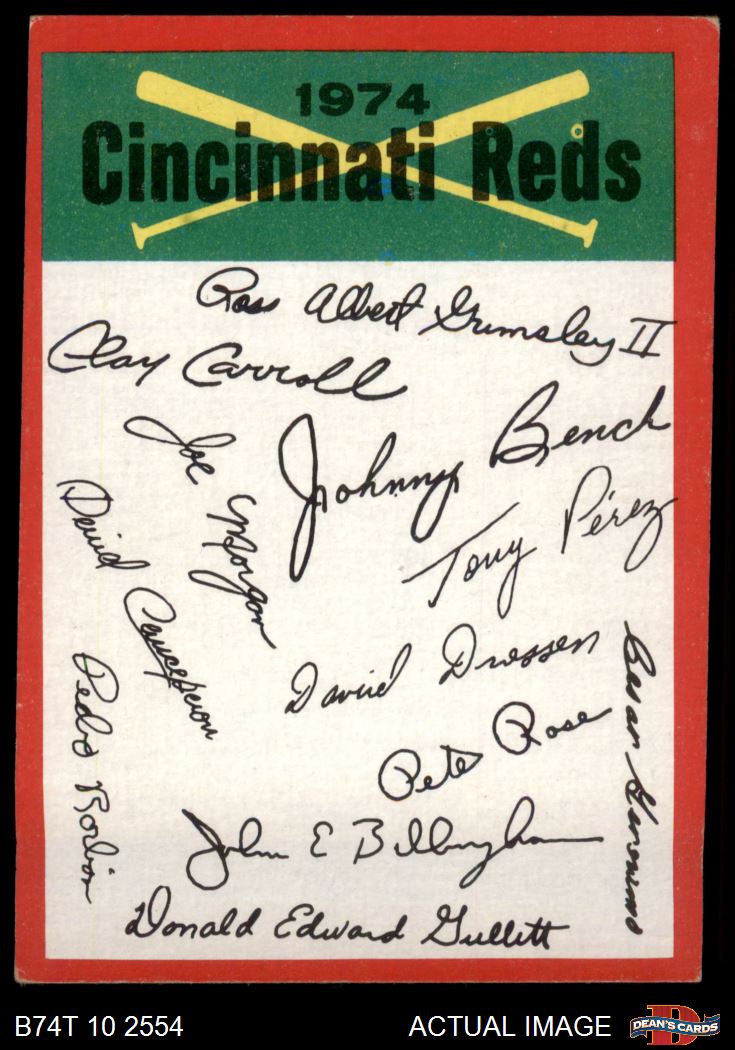 1974
Cincinnati Reds
Ross Albert Grimsley II
Clay Carroll
Johnny Bench
Joe Morgan
Tony Pérez
David Concepcion
David Driessen
Cesar Geronimo
Pete Rose
Pedro Borbón
John E Billingham
Donald Edward Gullett
B74T 10 2554
ACTUAL IMAGE
D
DEAN'S CARDS